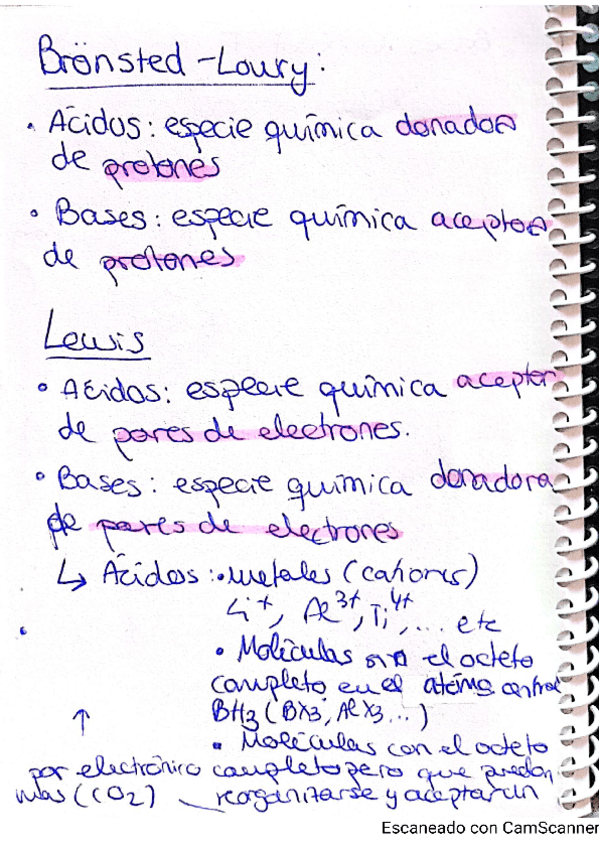 Brönsted-Loury:
• Ácidos: especie química donadora
de protones
• Bases: especie química aceptora
de protones
Lewis
• Ácidos: especie química acepton
de pares de electrones.
• Bases: especie química donadora
de pares de electrones
↳ Ácidos: • metales (cationes)
Li⁺, Al³⁺, Ti⁴⁺, ... etc
• Moléculas sin el octeto
completo en el átomo central
BH₃ (BX₃, AlX₃...)
• Moléculas con el octeto
completo pero que puedan
reorganizarse y aceptar un
↑
par electrónico
más (CO₂)
Escaneado con CamScanner